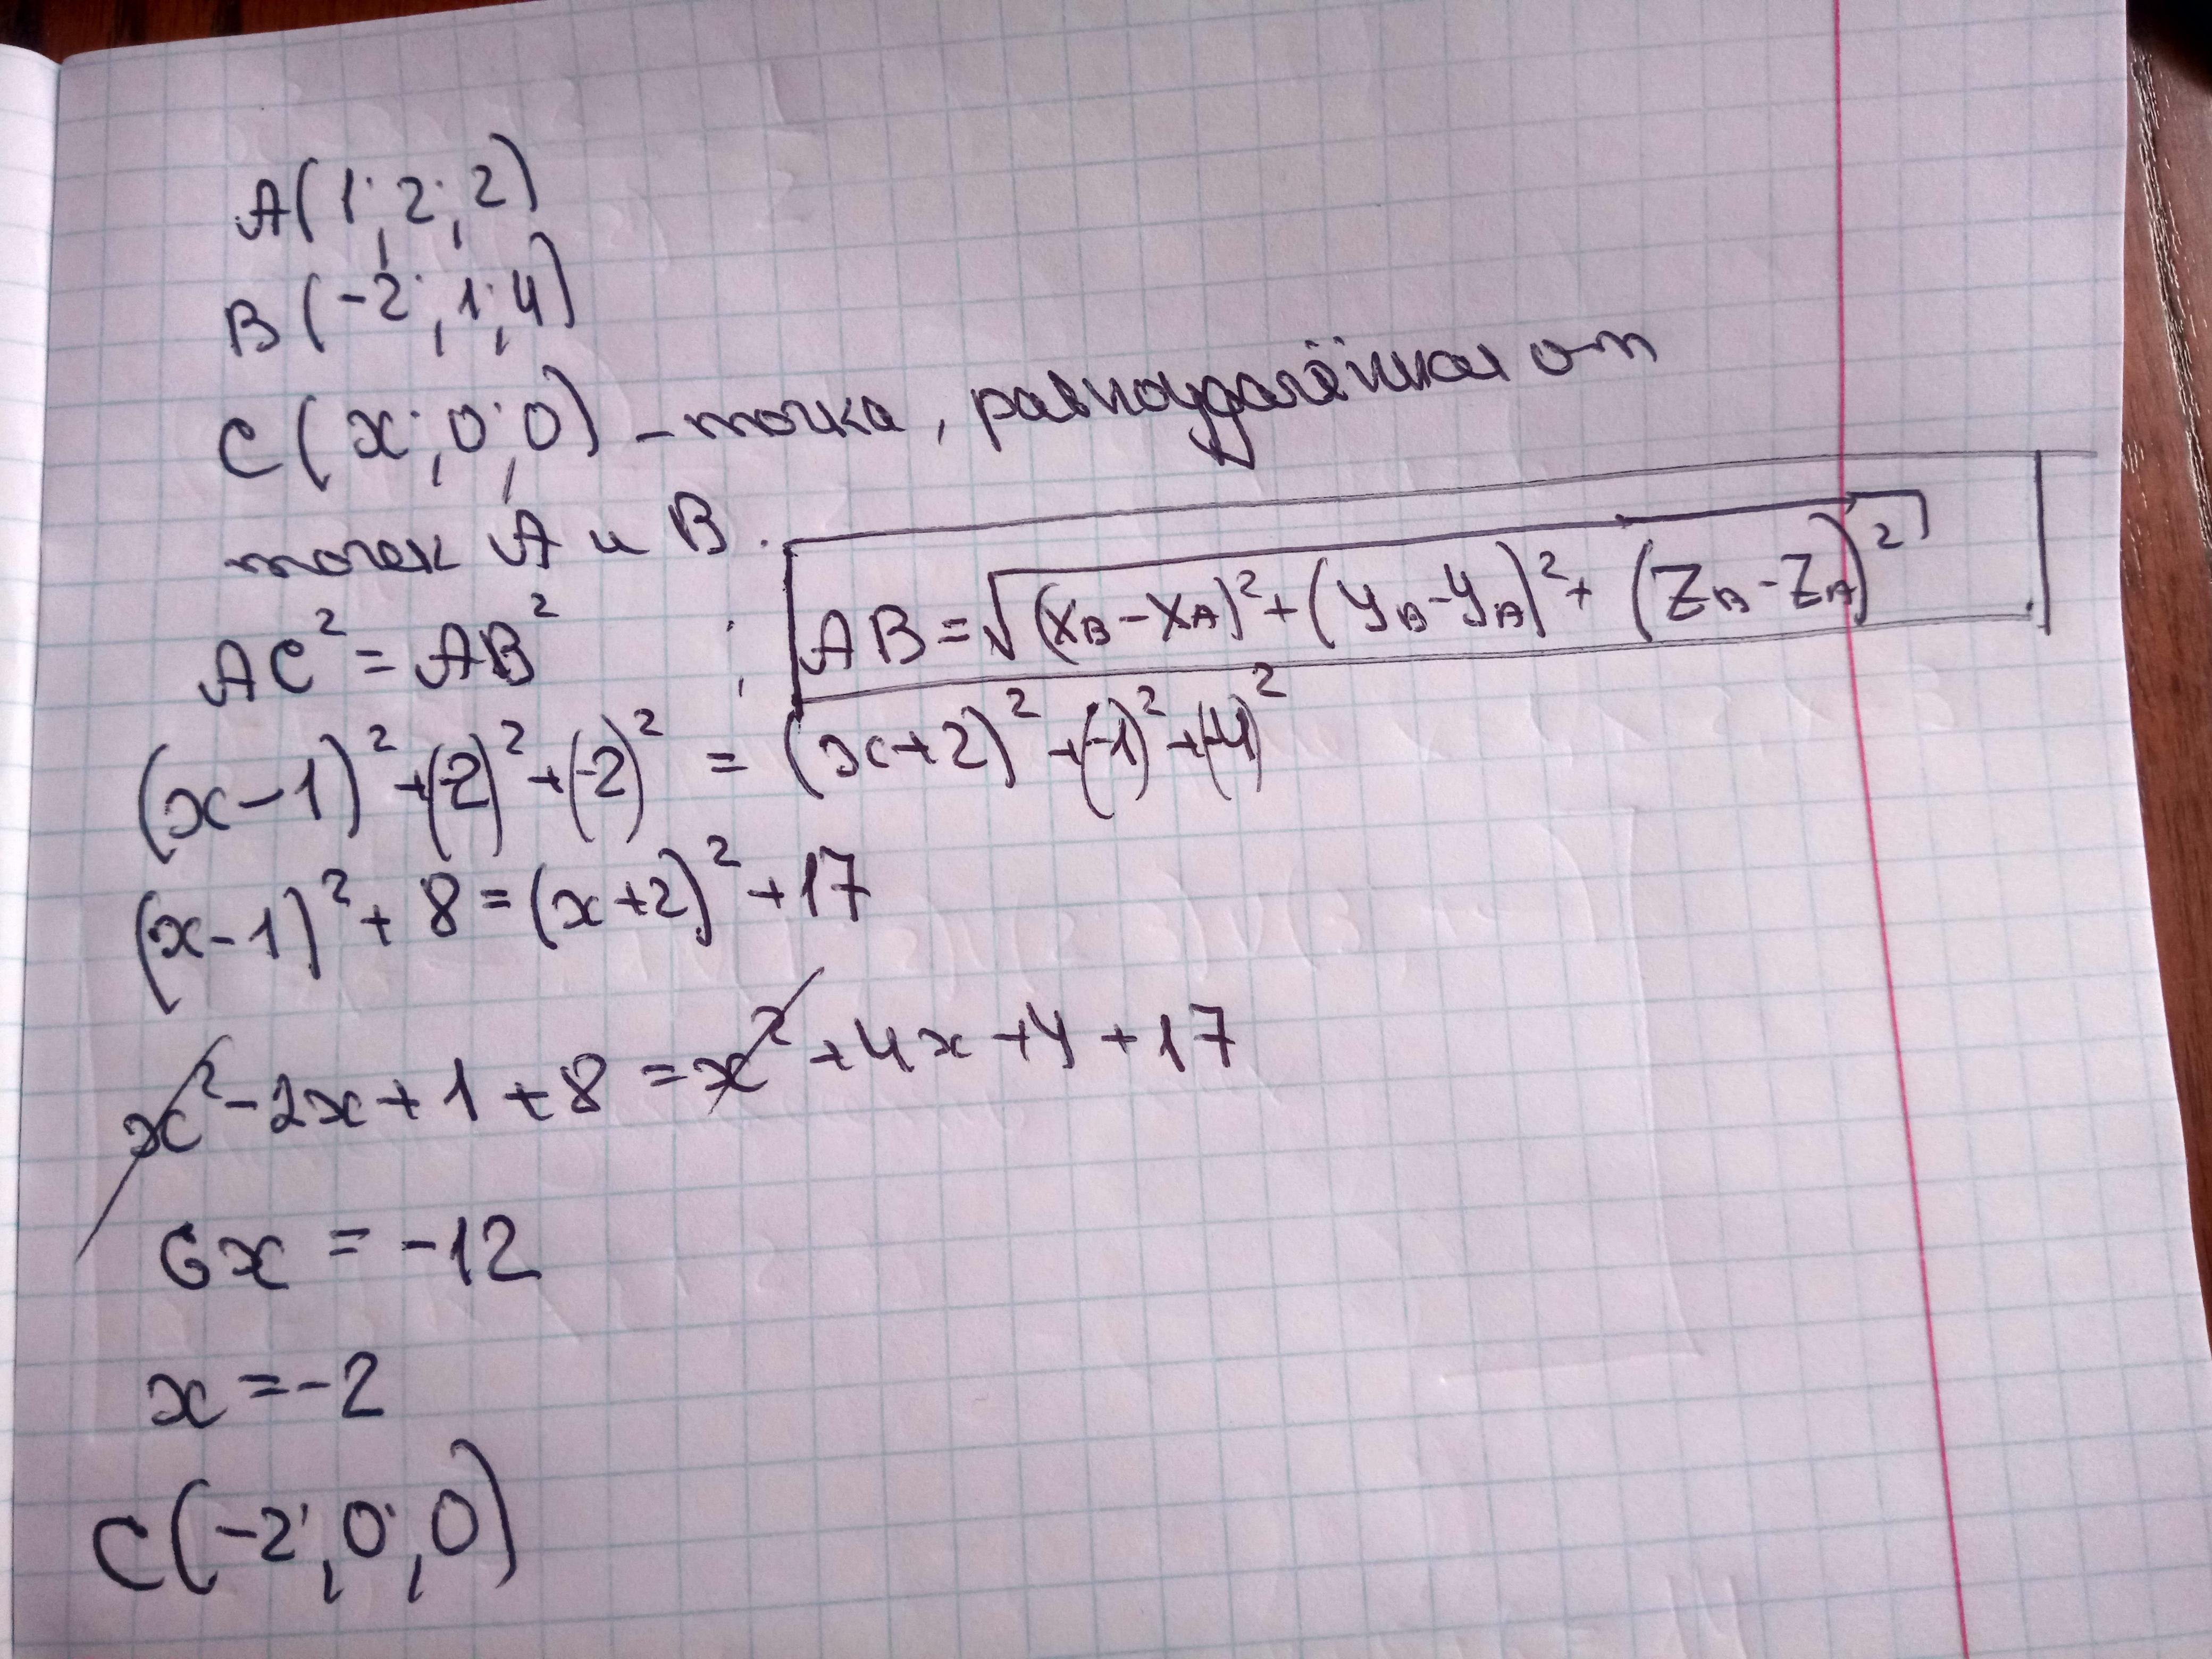 A(1;2;2)
B(-2;1;4)
C(x;0;0) - точка, равноудалённая от
точек A и B.
AC² = AB² ; AB = √((x_B - x_A)² + (y_B - y_A)² + (z_B - z_A)²)
(x-1)² + (-2)² + (-2)² = (x+2)² + (-1)² + (-4)²
(x-1)² + 8 = (x+2)² + 17
x² - 2x + 1 + 8 = x² + 4x + 4 + 17
6x = -12
x = -2
C(-2;0;0)